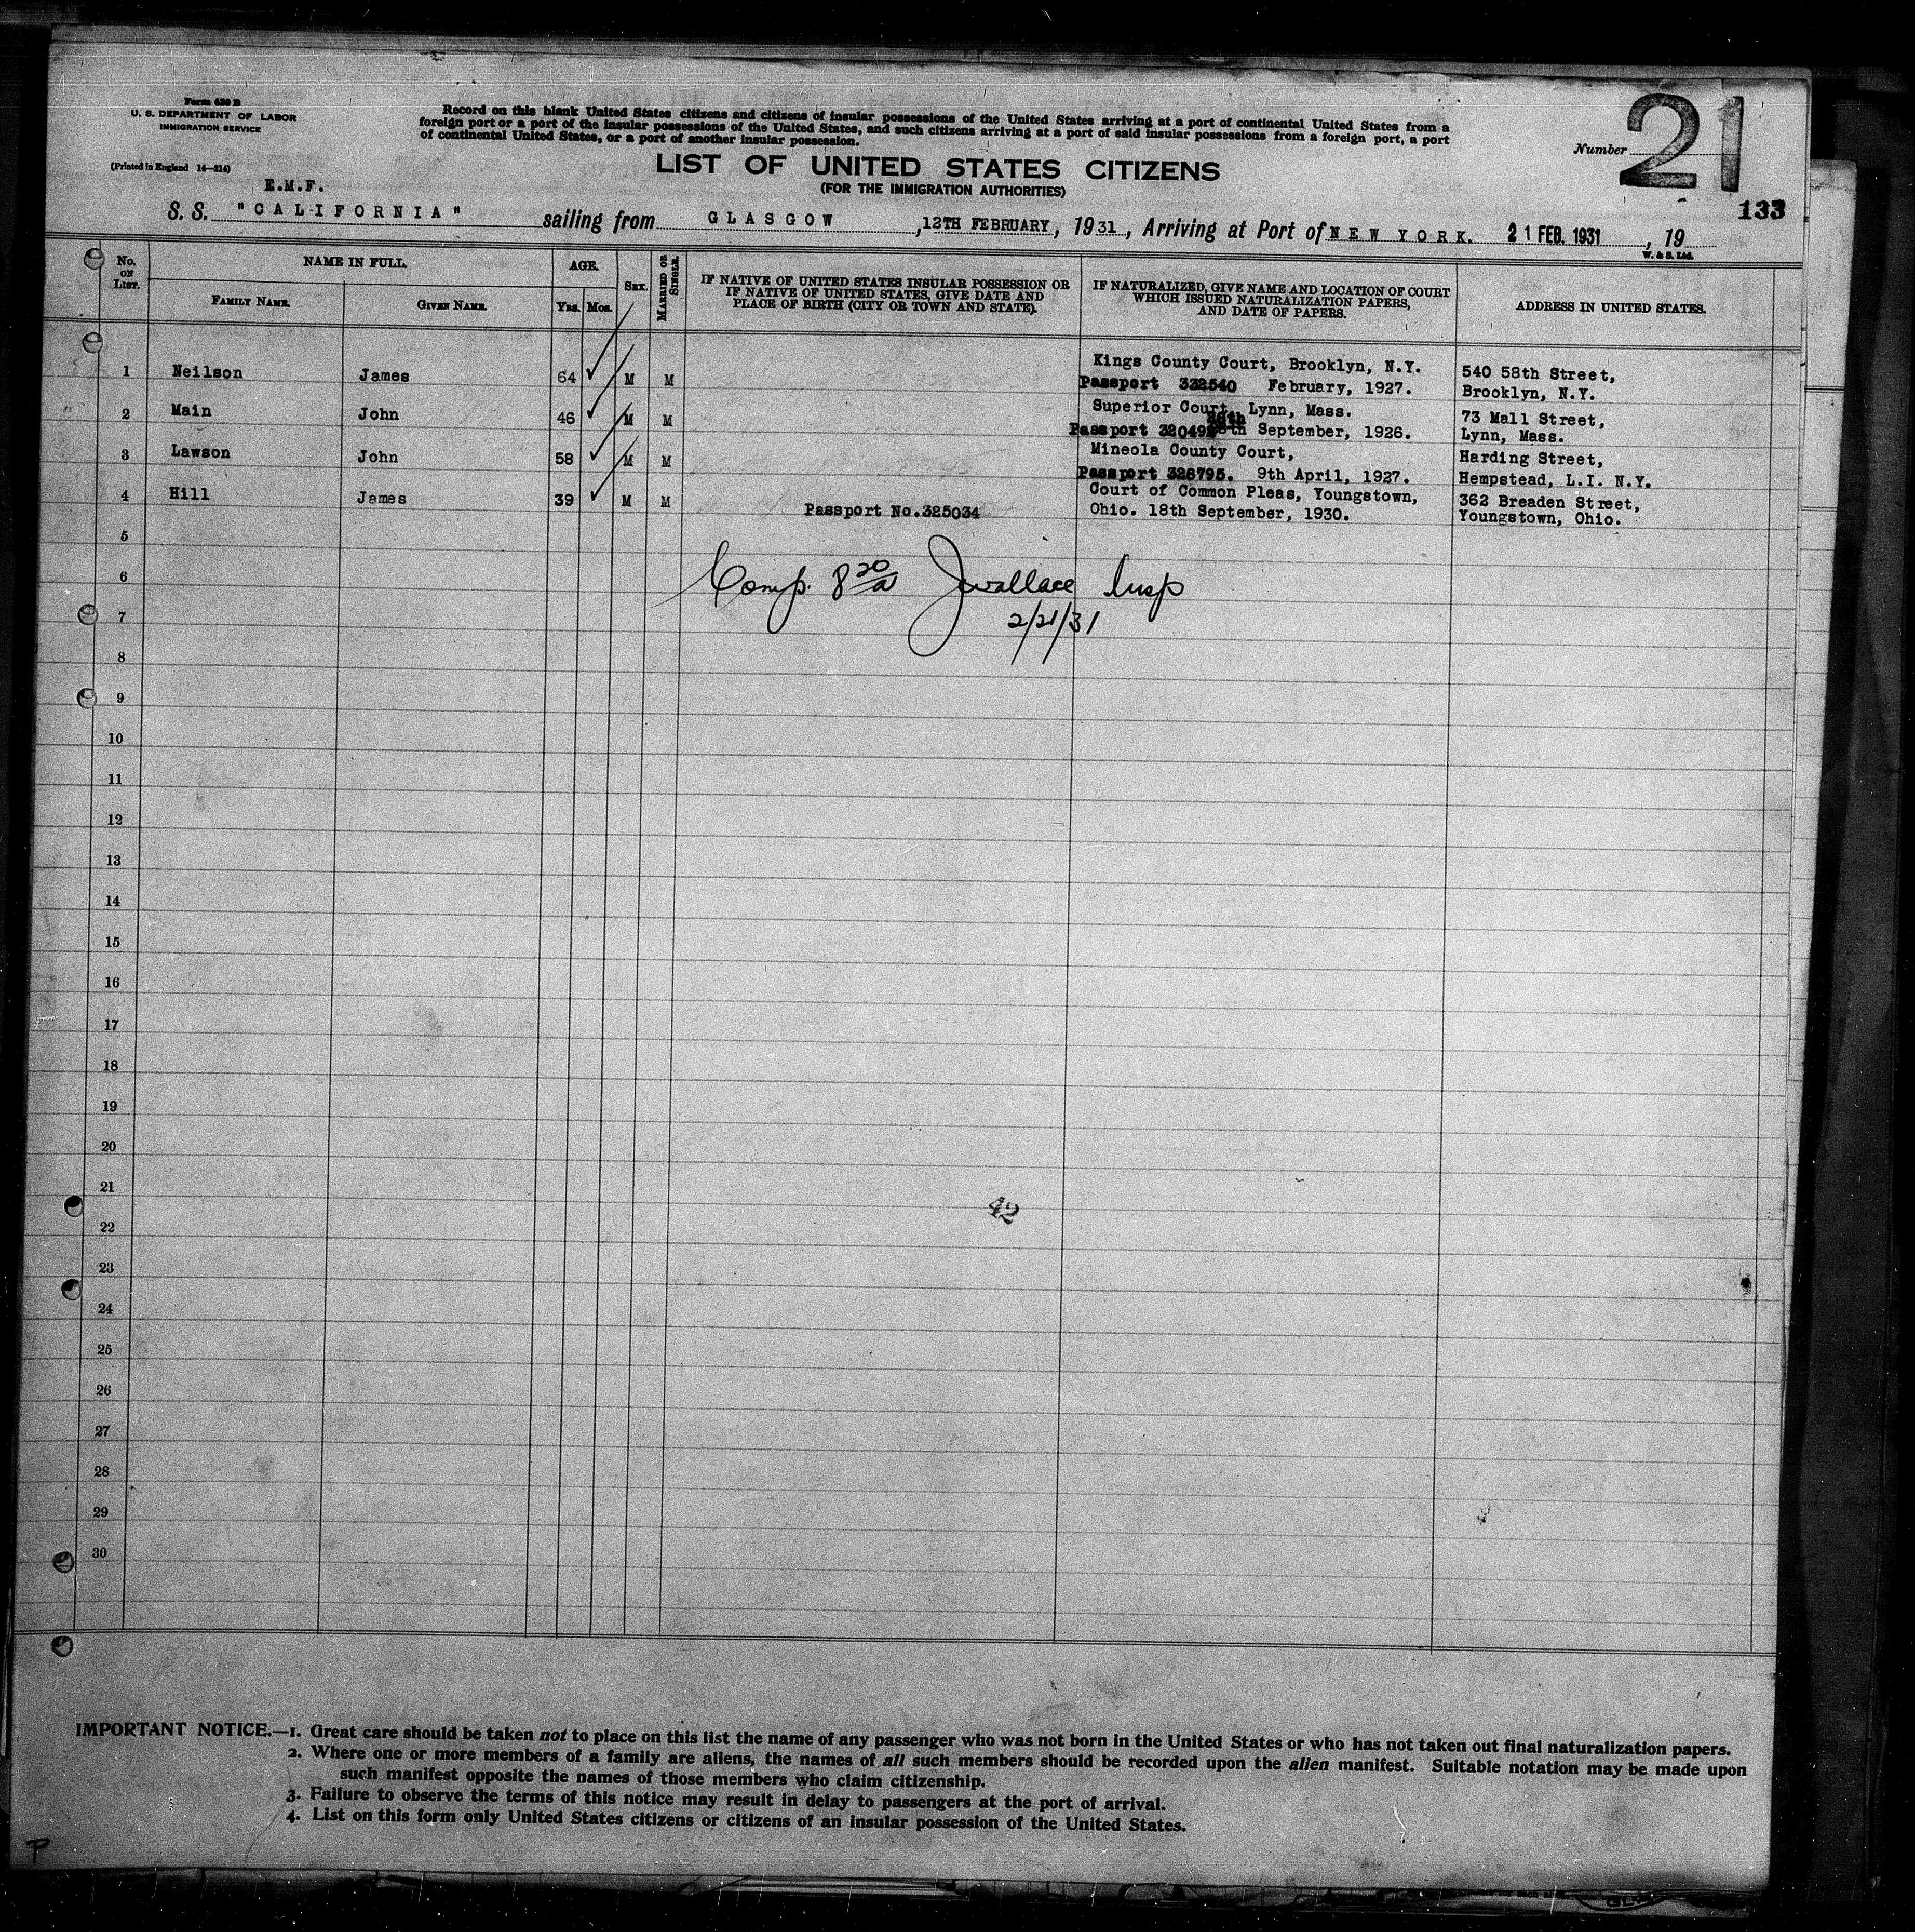 Form 630 B
U. S. DEPARTMENT OF LABOR
IMMIGRATION SERVICE
(Printed in England 14—214)
Record on this blank United States citizens and citizens of insular possessions of the United States arriving at a port of continental United States from a
foreign port or a port of the insular possessions of the United States, and such citizens arriving at a port of said insular possessions from a foreign port, a port
of continental United States, or a port of another insular possession.
Number 21
LIST OF UNITED STATES CITIZENS
(FOR THE IMMIGRATION AUTHORITIES)
133
E.M.F.
S. S. "CALIFORNIA" sailing from GLASGOW, 12TH FEBRUARY, 1931, Arriving at Port of NEW YORK. 21 FEB. 1931, 19
W. & S. Ltd.
No. ON LIST. NAME IN FULL. AGE. SEX. MARRIED OR SINGLE. IF NATIVE OF UNITED STATES INSULAR POSSESSION OR IF NATIVE OF UNITED STATES, GIVE DATE AND PLACE OF BIRTH (CITY OR TOWN AND STATE). IF NATURALIZED, GIVE NAME AND LOCATION OF COURT WHICH ISSUED NATURALIZATION PAPERS, AND DATE OF PAPERS. ADDRESS IN UNITED STATES.
FAMILY NAME. GIVEN NAME. Yrs. Mos.
1 Neilson James 64 M M Kings County Court, Brooklyn, N.Y. 540 58th Street,
Passport 332540 February, 1927. Brooklyn, N.Y.
2 Main John 46 M M Superior Court, Lynn, Mass. 73 Mall Street,
Passport September, 1926. Lynn, Mass.
3 Lawson John 58 M M Mineola County Court, Harding Street,
Passport 328795. 9th April, 1927. Hempstead, L.I. N.Y.
4 Hill James 39 M M Court of Common Pleas, Youngstown, 362 Breaden Street,
Passport No.325034 Ohio. 18th September, 1930. Youngstown, Ohio.
5
6
Comp. 8 20 a JWallace Insp
7
2/21/31
8
9
10
11
12
13
14
15
16
17
18
19
20
21
42
22
23
24
25
26
27
28
29
30
IMPORTANT NOTICE.—1. Great care should be taken not to place on this list the name of any passenger who was not born in the United States or who has not taken out final naturalization papers.
2. Where one or more members of a family are aliens, the names of all such members should be recorded upon the alien manifest. Suitable notation may be made upon
such manifest opposite the names of those members who claim citizenship.
3. Failure to observe the terms of this notice may result in delay to passengers at the port of arrival.
4. List on this form only United States citizens or citizens of an insular possession of the United States.
P